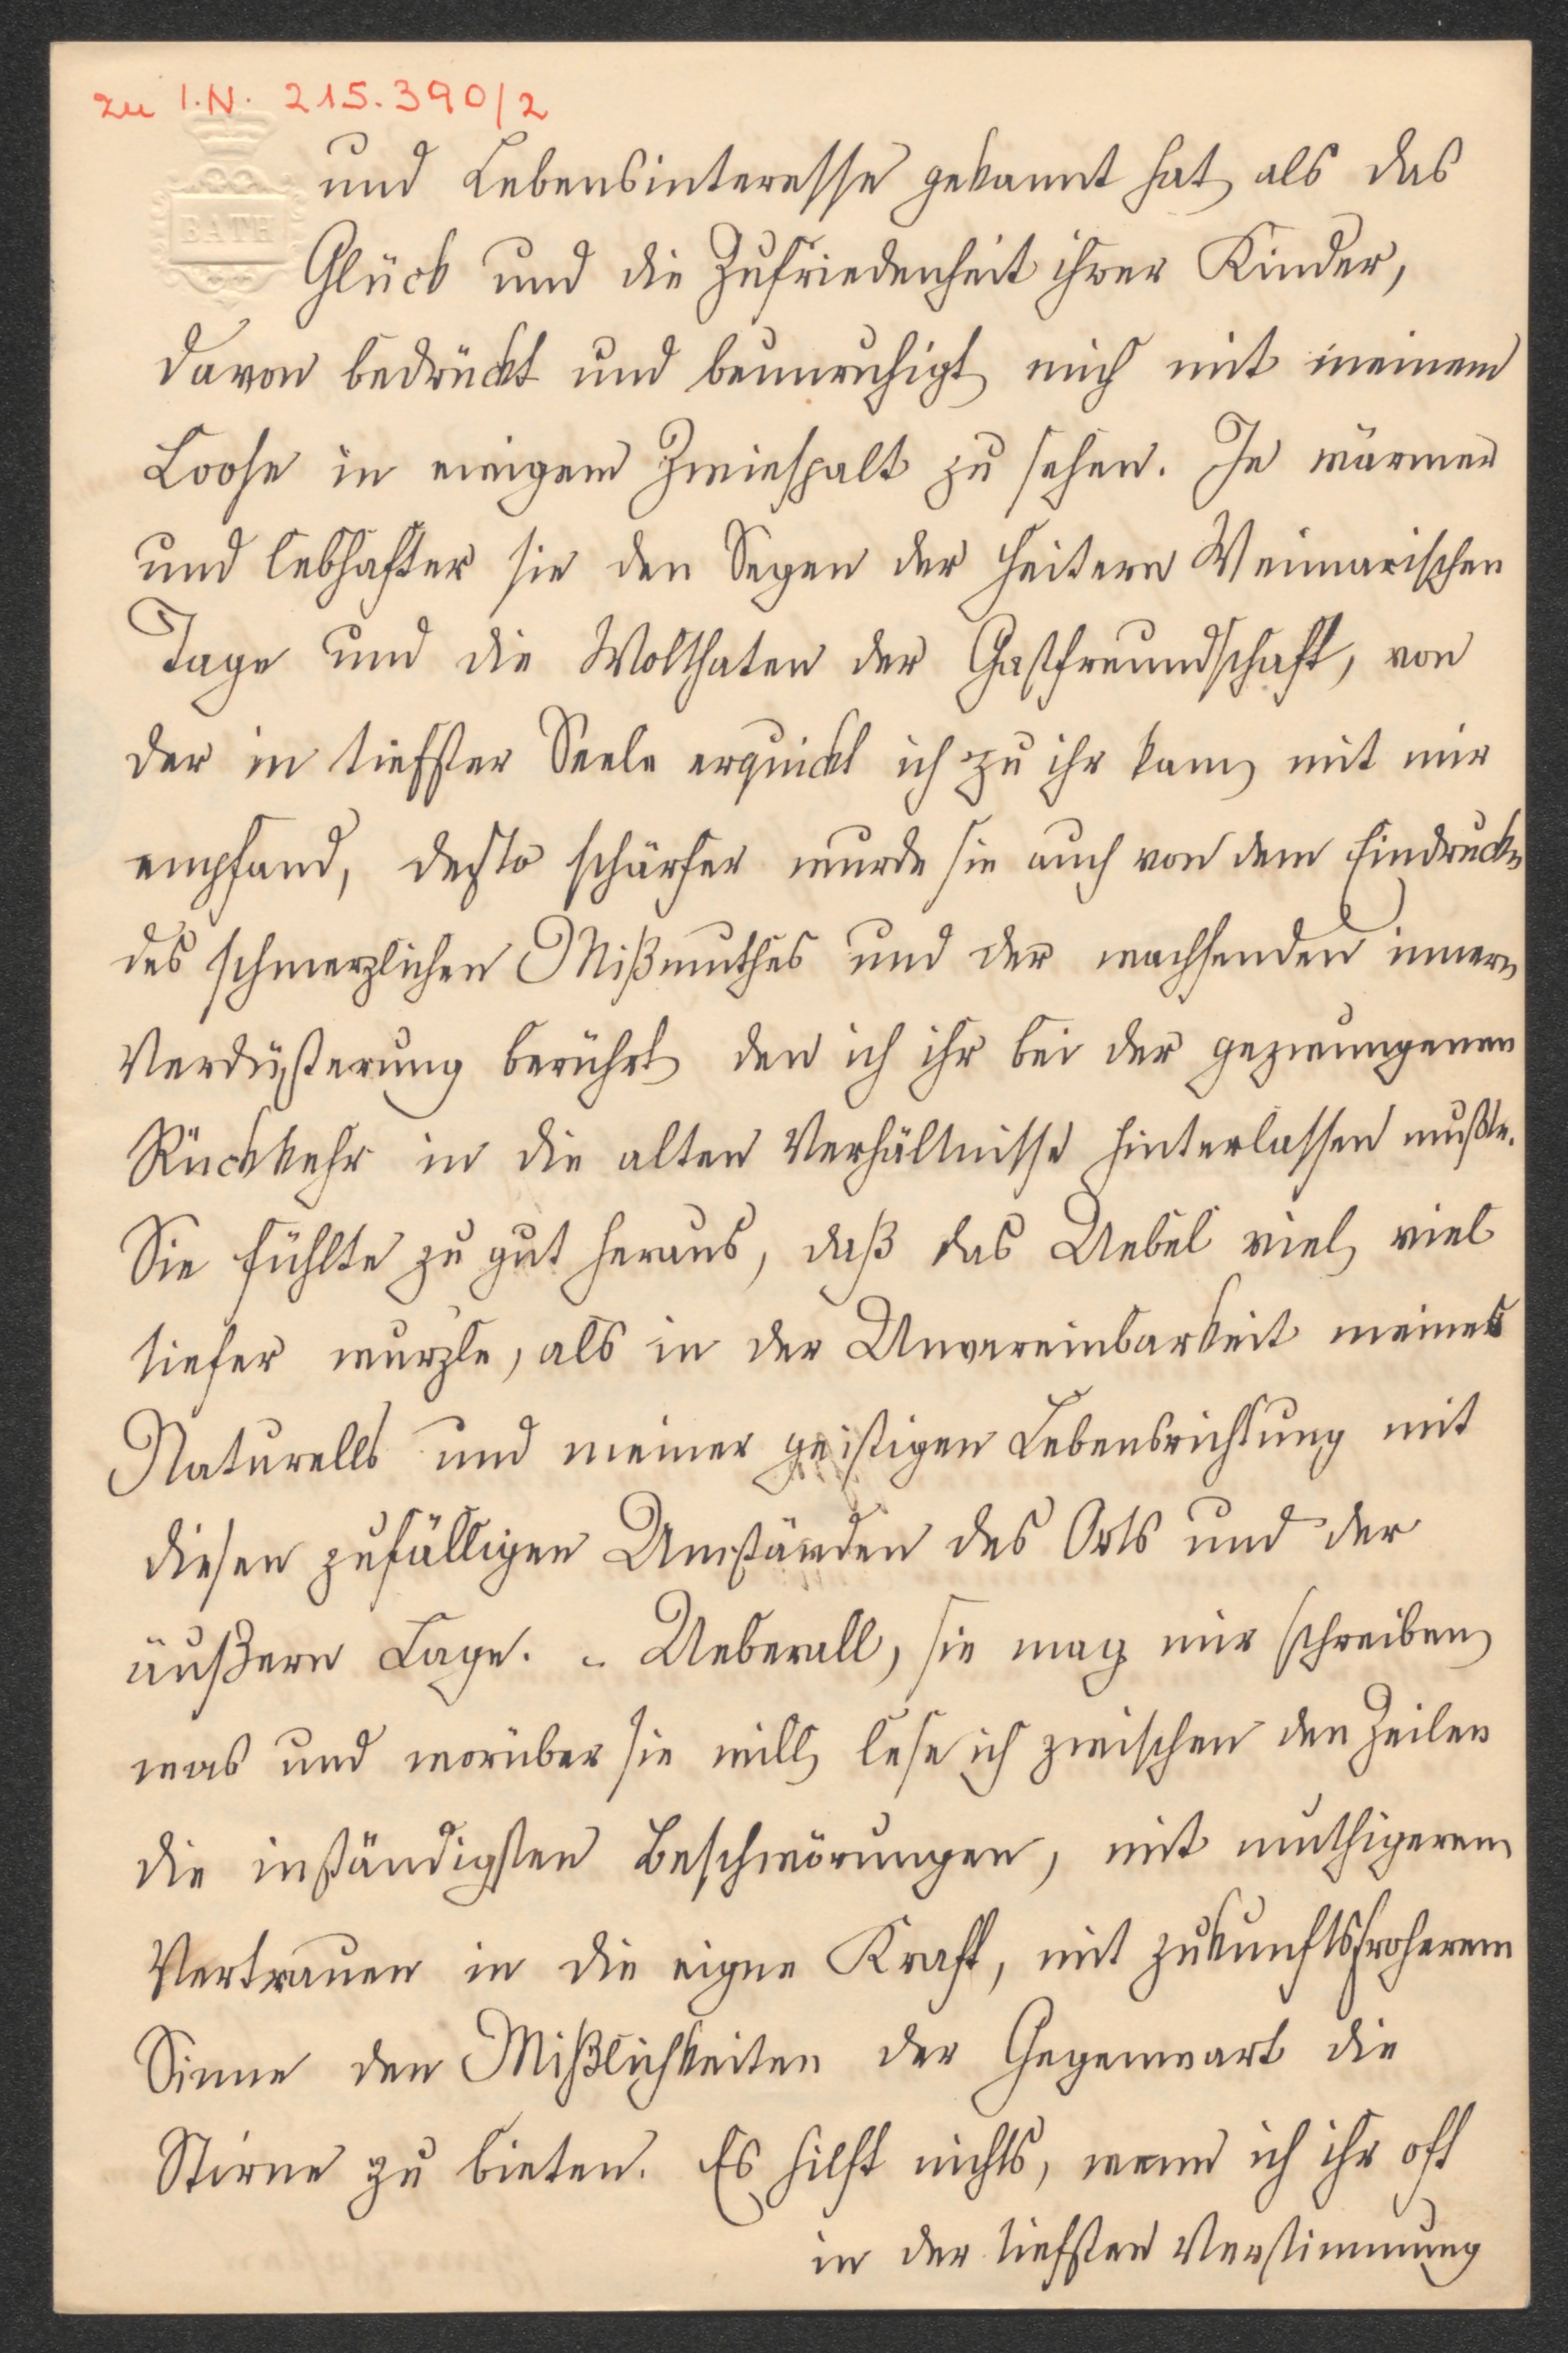 zu I.N. 215.390/2
BATH
und Lebensinteresse gekannt hat, als das
Glück und die Zufriedenheit ihrer Kinder,
davon bedrückt und beunruhigt, mich mit meinem
Loose in ewigem Zwiespalt zu sehen. Je wärmer
und lebhafter sie den Segen der heitern Weimarischen
Tage und die Wolthaten der Gastfreundschaft, von
der in tiefster Seele erquickt ich zu ihr kam, mit mir
empfand, desto schärfer wurde sie auch von dem Eindrucke
des schmerzlichen Mißmuthes und der wachsenden innern
Verdüsterung berührt, den ich ihr bei der gezwungenen
Rückkehr in die alten Verhältnisse hinterlassen mußte.
Sie fühlte zu gut heraus, daß das Uebel viel, viel
tiefer wurzle, als in der Unvereinbarkeit meines
Naturells und meiner geistigen Lebensrichtung mit
diesen zufälligen Umständen des Orts und der
äußern Lage. – Ueberall, sie mag mir schreiben,
was und worüber sie will, lese ich zwischen den Zeilen
die inständigsten Beschwörungen, mit muthigerem
Vertrauen in die eigne Kraft, mit zukunftsfroherem
Sinne den Mißlichkeiten der Gegenwart die
Stirne zu bieten. Es hilft nichts, wenn ich ihr oft
in der tiefsten Verstimmung